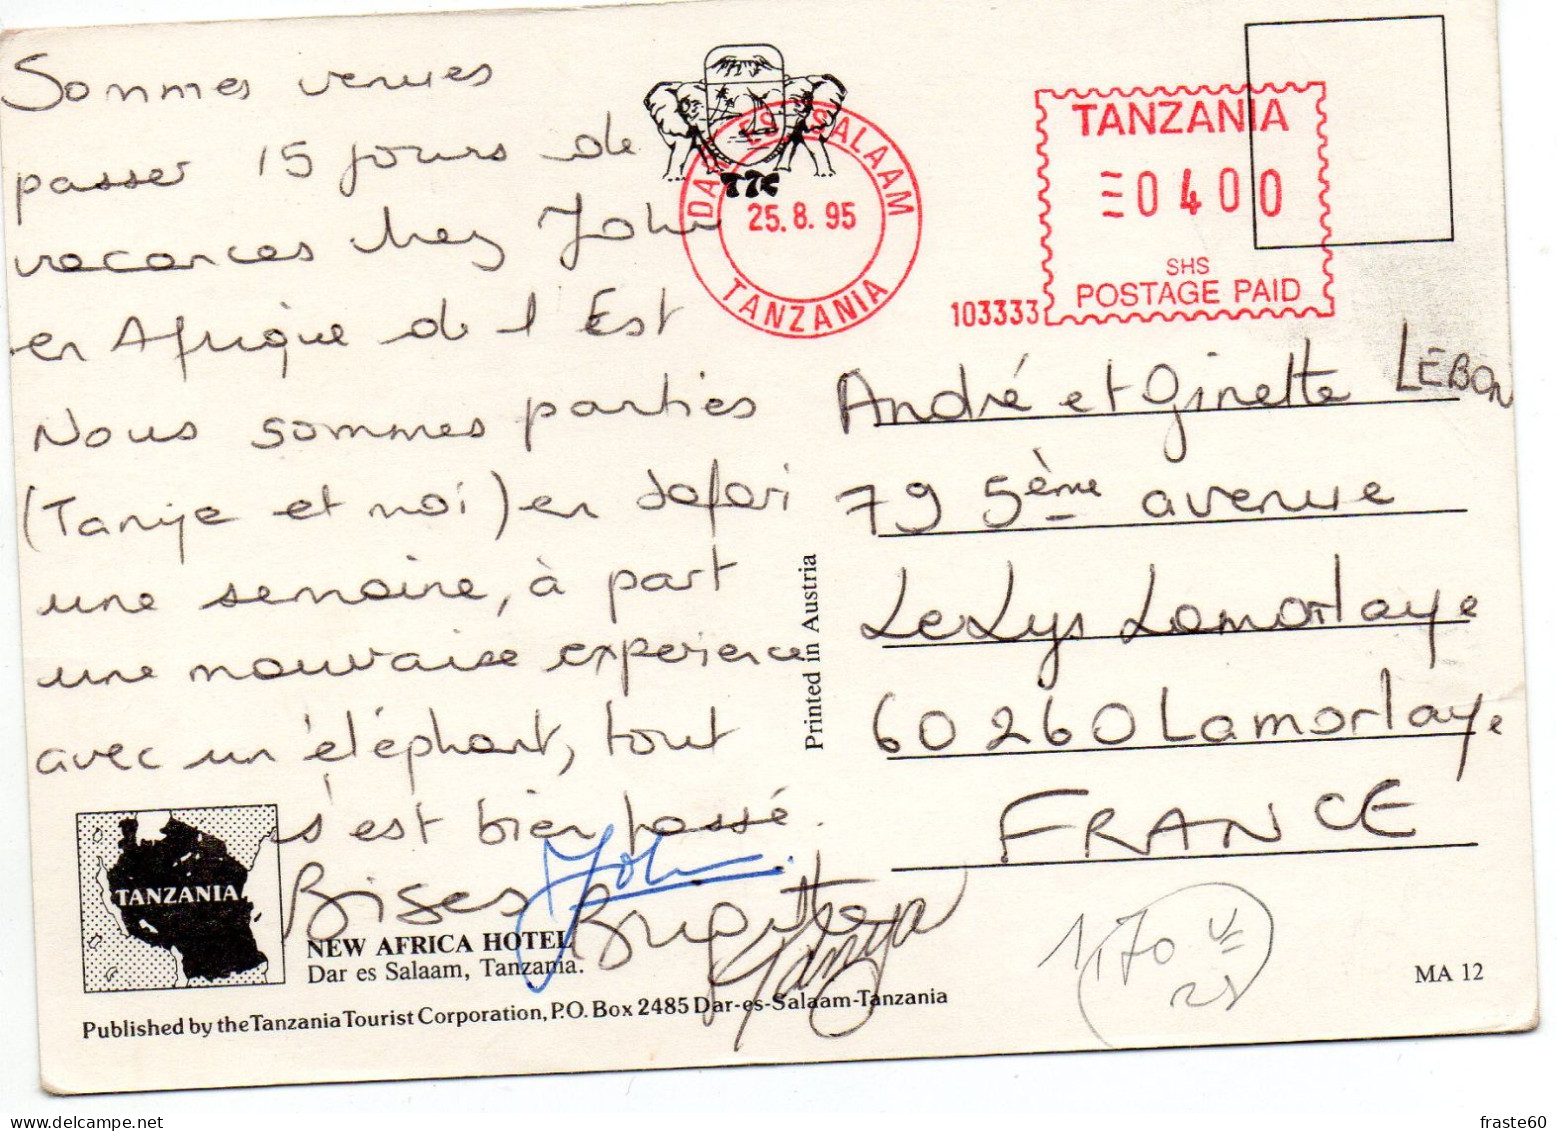 Sommes venues
passer 15 jours de
vacances chez John
en Afrique de l'Est
Nous sommes parties
(Tanya et moi) en safari
une semaine, à part
une mauvaise expérience
avec un éléphant, tout
s'est bien passé.
Bises
John
Brigitte
Tanya
TTC
DAR ES SALAAM
25.8.95
TANZANIA
TANZANIA
0400
SHS
POSTAGE PAID
103333
André et Ginette LEBON
79 5ème avenue
Le Lys Lamorlaye
60260 Lamorlaye
FRANCE
Printed in Austria
TANZANIA
NEW AFRICA HOTEL
Dar es Salaam, Tanzania.
Published by the Tanzania Tourist Corporation, P.O. Box 2485 Dar-es-Salaam-Tanzania
MA 12
1,70
delcampe.net
fraste60